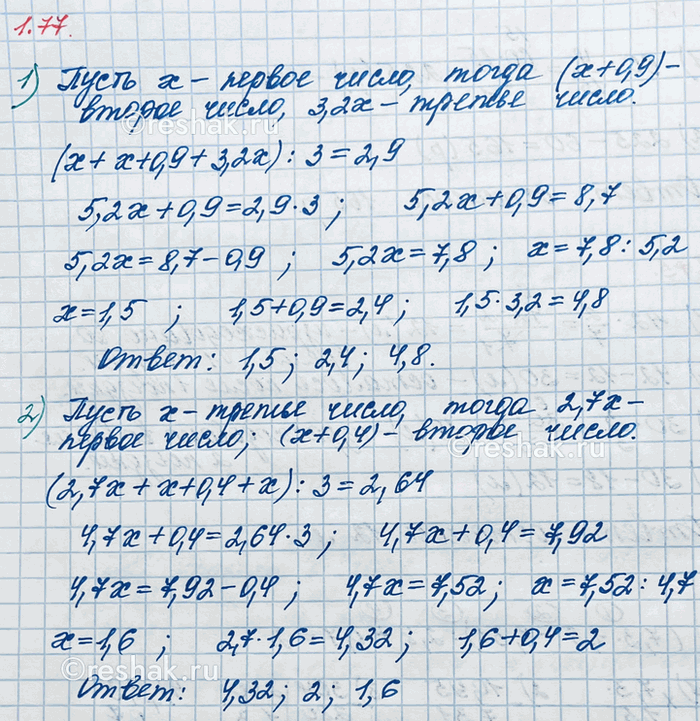 1.77.
1) Пусть x – первое число, тогда (x+0,9) –
второе число, 3,2x – третье число.
(x + x+0,9 + 3,2x) : 3 = 2,9
5,2x + 0,9 = 2,9 · 3 ; 5,2x + 0,9 = 8,7
5,2x = 8,7 – 0,9 ; 5,2x = 7,8 ; x = 7,8 : 5,2
x = 1,5 ; 1,5 + 0,9 = 2,4 ; 1,5 · 3,2 = 4,8
Ответ: 1,5 ; 2,4 ; 4,8.
2) Пусть x – третье число, тогда 2,7x –
первое число; (x+0,4) – второе число.
(2,7x + x+0,4 + x) : 3 = 2,64
4,7x + 0,4 = 2,64 · 3 ; 4,7x + 0,4 = 7,92
4,7x = 7,92 – 0,4 ; 4,7x = 7,52 ; x = 7,52 : 4,7
x = 1,6 ; 2,7 · 1,6 = 4,32 ; 1,6 + 0,4 = 2
Ответ: 4,32 ; 2 ; 1,6